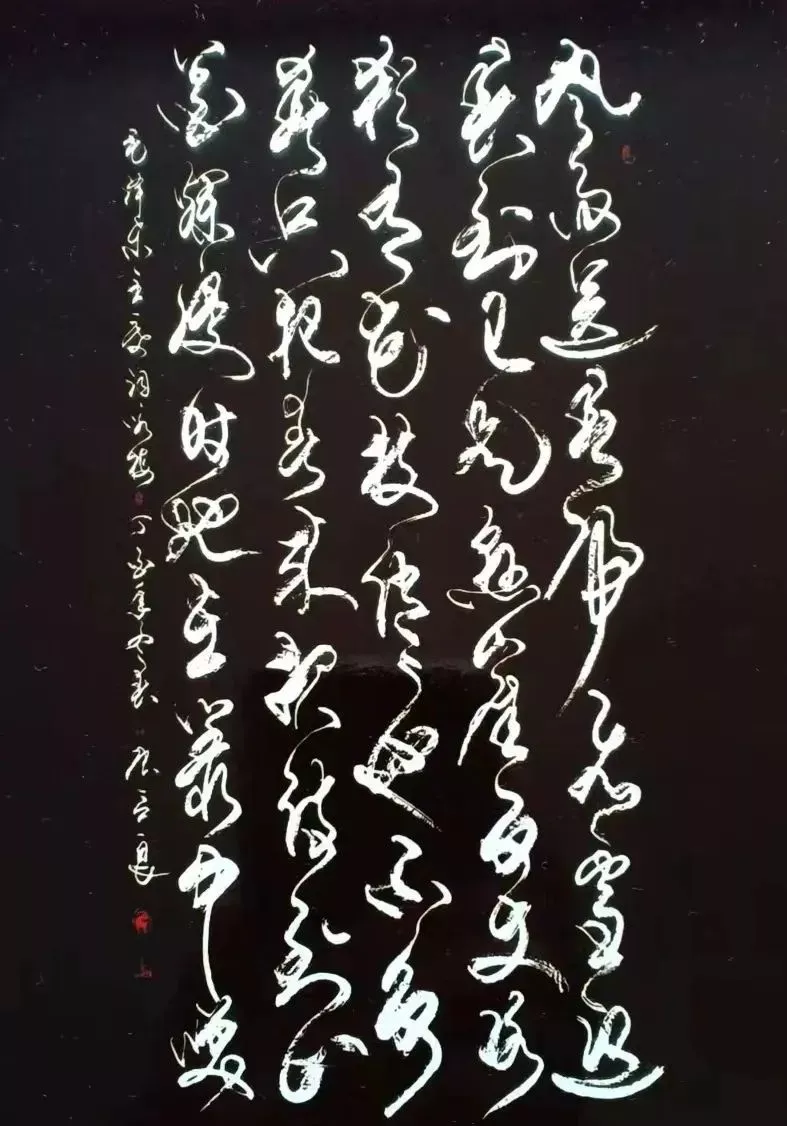 风雨送春归飞雪迎
春到已是悬崖百丈冰
犹有花枝俏俏也不争
春只把春来报待到山
花烂漫时她在丛中笑
毛泽东主席词咏梅 丁酉年